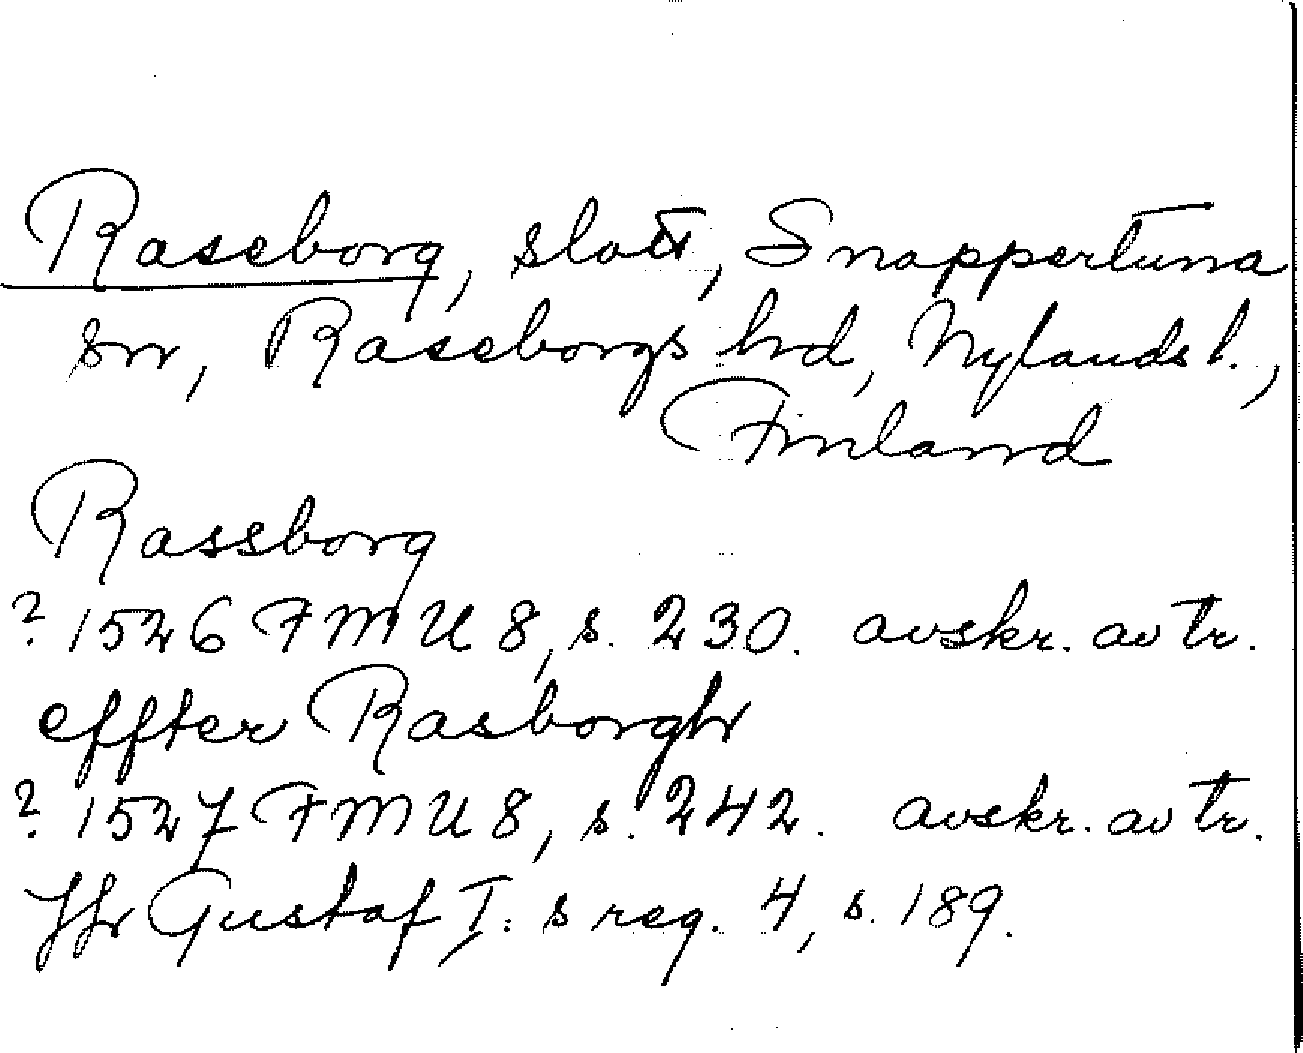 Raseborg, slott, Snappertuna
sn, Raseborgs hd, Nylands l.,
Finland
Rassborg
? 1526 FMU 8, s. 230. avskr. av tr.
effter Rasborgh
? 1527 FMU 8, s. 242. avskr. av tr.
Jfr Gustaf I:s reg. 4, s. 189.